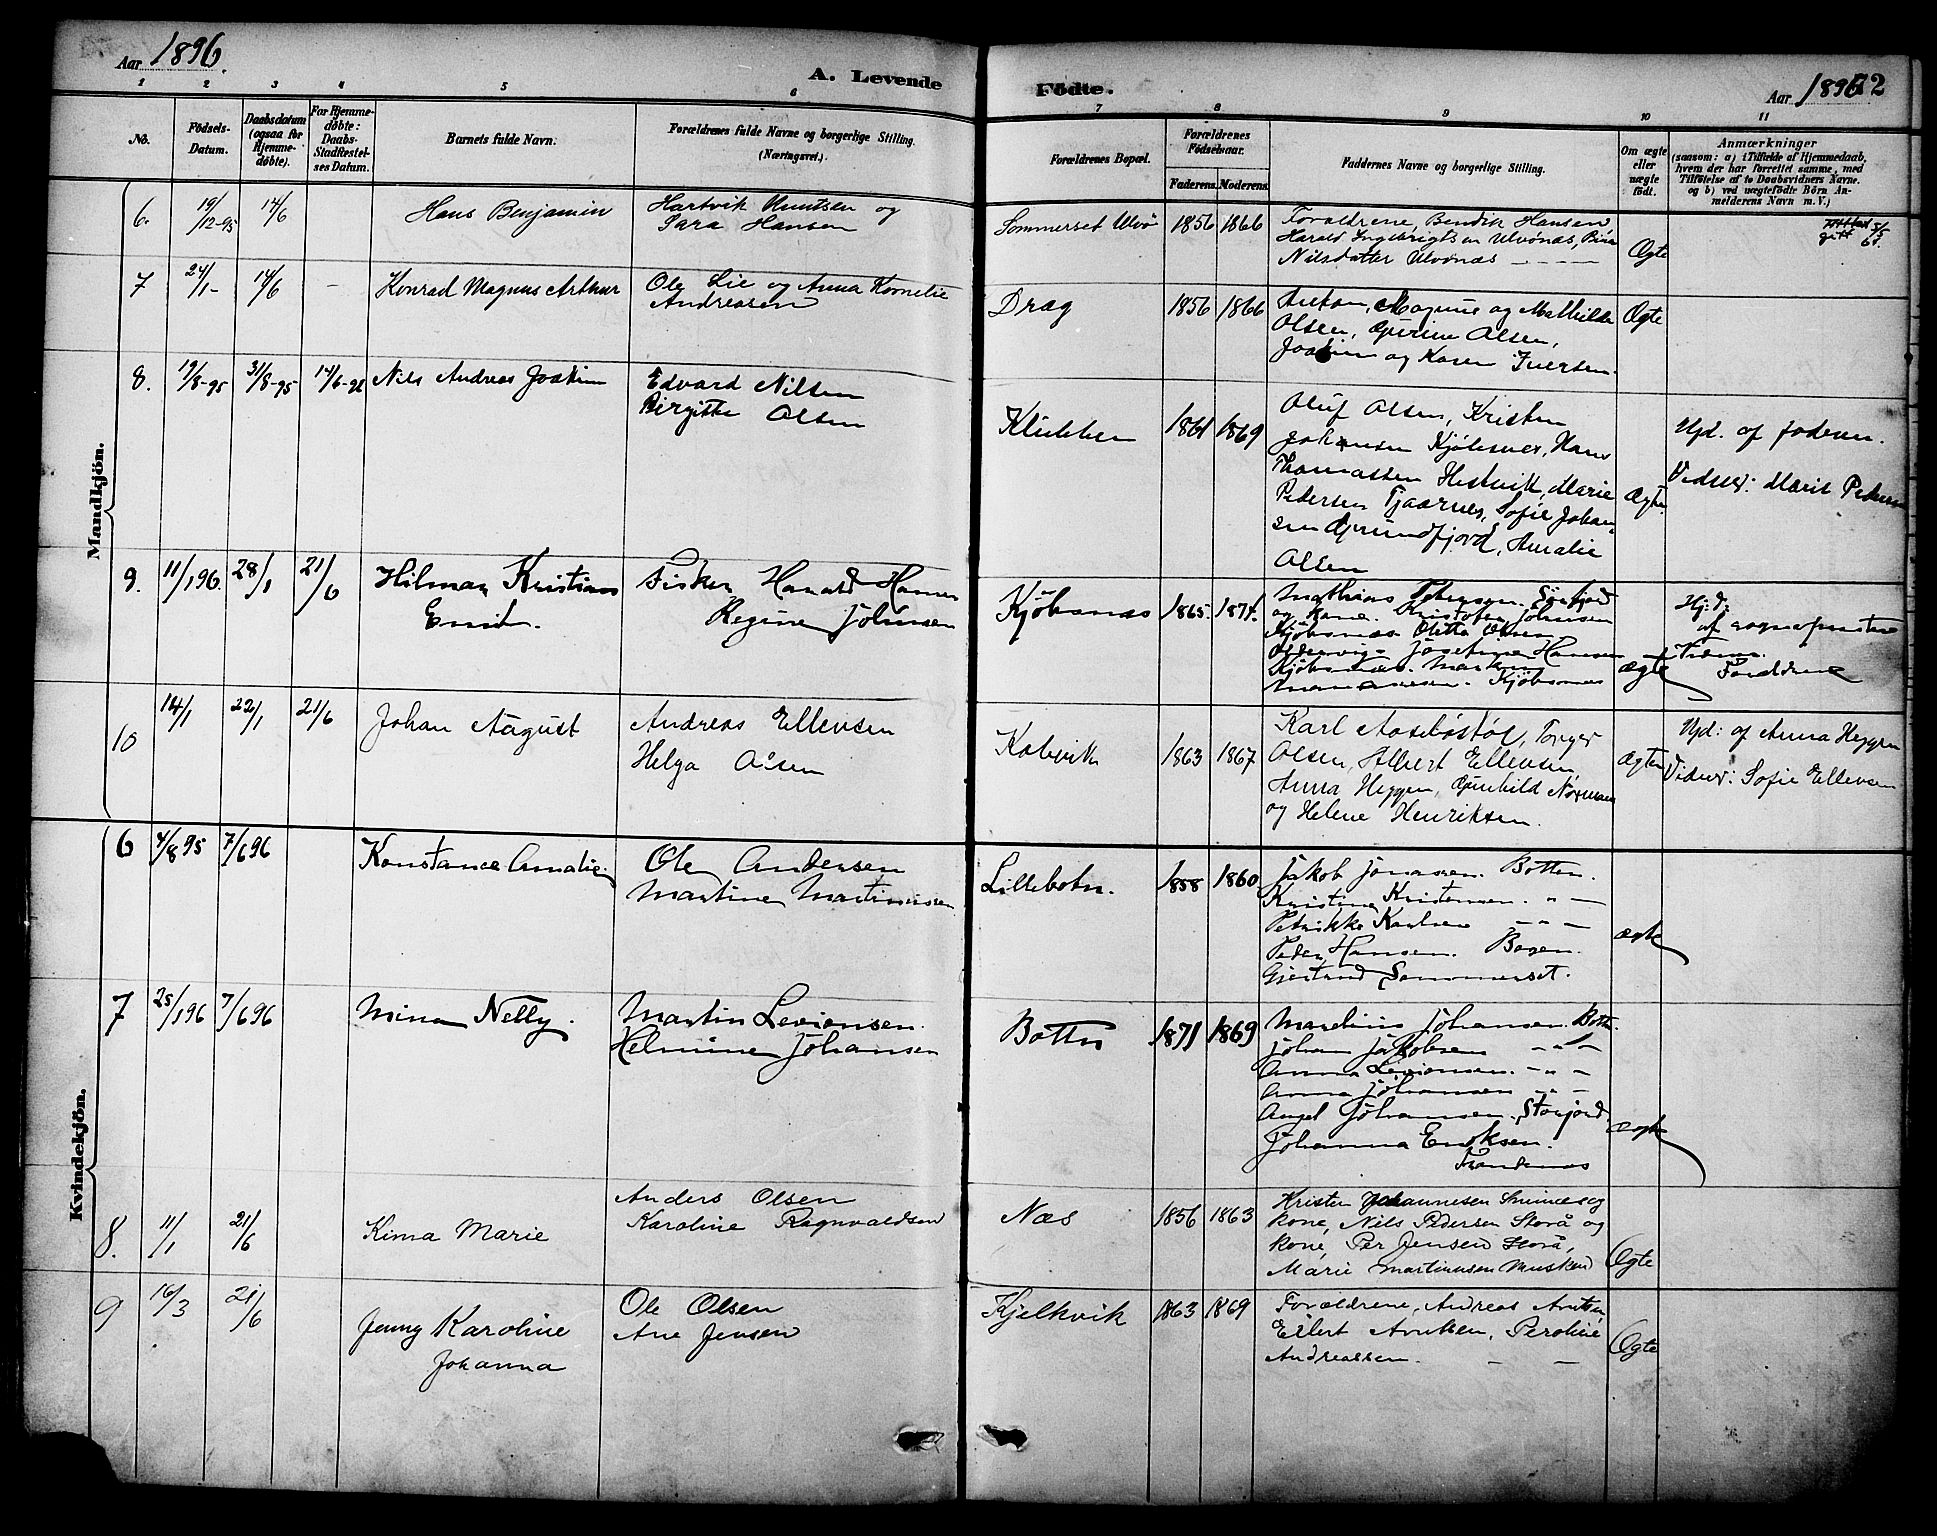 Aar 1896.
A. Levende
Födte.
Aar 1896
12
1 2 3 4 5 6 7 8 9 10 11
No.
Födsels-
Datum.
Daabsdatum
(ogsaa for
Hjemme-
døbte).
For Hjemme-
døbte:
Daabs-
Stadfæstel-
ses Datum.
Barnets fulde Navn.
Forældrenes fulde Navne og borgerlige Stilling.
(Næringsvei.)
Forældrenes Bopæl.
Forældrenes
Födselsaar.
Faderens. Moderens.
Faddernes Navne og borgerlige Stilling.
Om ægte
eller
uægte
født.
Anmærkninger
(saasom: a) i Tilfælde af Hjemmedaab,
hvem der har forrettet samme, med
Tilføielse af to Daabsvidners Navne.
og b) ved uægtefødte Börn An-
melderens Navn m. V.)
Mandkjön.
6. 19/12-95 14/6 Hans Benjamin
Hartvik Knutsen og
Sara Hansen
Sommerset Ulvö 1856 1866
Forældrene, Bendik Hansen
Harald Ingebrigtsen Ulvönæs,
Nilsdatter Ulvönæs
Ægte
7 24/1- 14/6 - Konrad Magnus Arthur
Ole Lie og Anna Kornelie
Andreasen
Drag 1856 1866
Anton, Magnus og Mathilde
Olsen, Gurine Olsen,
Joakim og Karen Iversen.
Ægte
8. 19/8-95 31/8-95 14/6-96 Nils Andreas Joakim
Edvard Nilsen
Birgitte Olsen
Klubben 1861 1869
Oluf Olsen, Kristen
Johansen Kjöbsnes, Hans
Thomassen Hestvik, Marie
Pedersen Tjaarnes, Sofie Johan-
sen Grundfjord, Amalie
Olsen
Ægte
Hjd. af faderen.
Vidner: Marit Pedersen
9. 11/1 96. 28/1 21/6 Hilmar Kristian
Emil.
Fisker Harald Hansen
Regine Johnsen
Kjöbsnæs 1865. 1874.
Mathias Petersen. Sörfjord
og kone. Kristofer Johnsen
Kjöbsnæs. Olette Olsen
Josefine Hansen
Kjöbsnæs.
Kjöbsnæs
ægte
Hjd:
af sognepresten
Forældrene
10 14/1 22/1 21/6 Johan August
Andreas Ellevsen
Helga Olsen
Kobvik 1863 1867
Karl Aasebøstøl, Torger
Olsen, Albert Ellevsen
Anna Heggen, Gunhild Normann
og Helene Henriksen.
Ægte
Hjd: af Anna Heggen
Vidner: Sofie Ellevsen
Kvindekjön.
6 4/8 95 7/6 96 Konstance Amalie.
Ole Andersen
Martine Martinussen.
Lillebotn. 1858 1860
Jakob Jonassen. Botten.
Kristine Kristensen. - " -
Petrikke Karlsen - " -
Peder Hansen. Bogen.
Gjertrud Sommerset.
ægte
7 25/1 96 7/6 96 Mina Nelly.
Martin Levionsen.
Helmine Johansen
Botten 1871 1869
Marelius Johansen. Botten.
Johan Jakobsen - " -
Anna Levionsen. - " -
Anna Johansen - " -
Angel Johansen. Storjord.
Johanna Enoksen.
Trandenæs
ægte
8. 11/1 21/6 Kima Marie
Anders Olsen
Karoline Ragnvaldsen
Næs 1856 1863
Kristen Johannesen og
kone, Nils Pedersen Storå og
kone, Per Jensen Storå,
Marie Martinusen Musken
Ægte
9 16/3 21/6 Jenny Karoline
Johanna
Ole Olsen
Ane Jensen
Kjelkvik 1863 1869
Forældrene, Andreas Arntsen,
Eilert Arntsen, Peroline
Andreassen. - -
Ægte